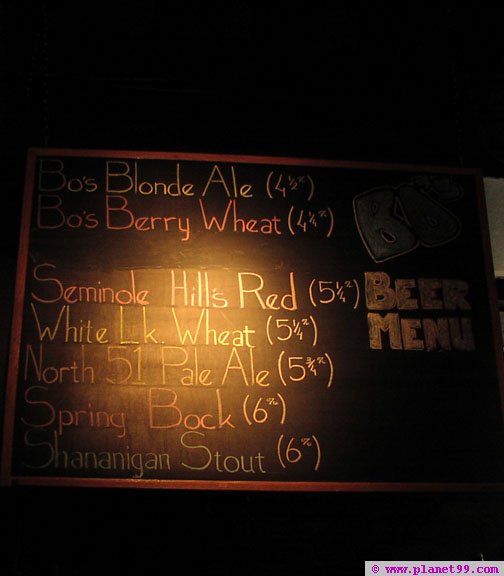 Bo's Blonde Ale (4½%)
Bo's Berry Wheat (4¼%)
Seminole Hill's Red (5½%)
White Lk. Wheat (5½%)
North 51 Pale Ale (5¾%)
Spring Bock (6%)
Shananigan Stout (6%)
BO's
BEER
MENU
© www.planet99.com